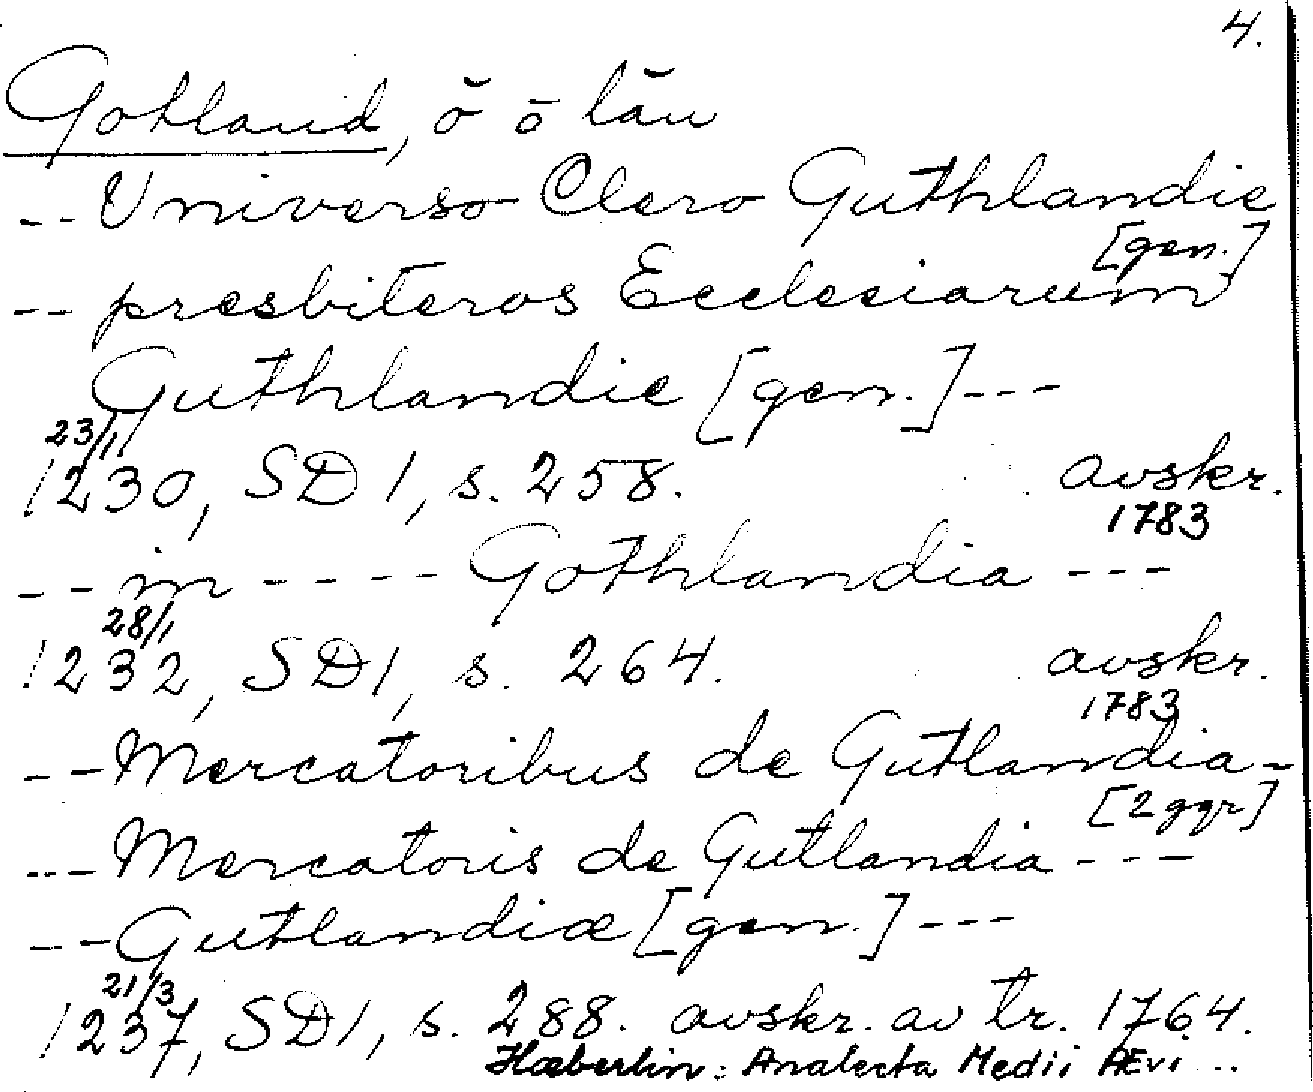 4.
Gotland, ö o län
-- Universo Clero Guthlandie
[gen.]
-- presbiteros Ecclesiarum
Guthlandie [gen.] ---
23/1
1230, SD 1, s. 258. avskr.
1783
-- in ---- Gothlandia ---
28/1
1232, SD 1, s. 264. avskr.
1783
-- Mercatoribus de Gutlandia -
[2 ggr]
--- Mercatoris de Gutlandia ---
-- Gutlandiæ [gen.] ---
21/3
1237, SD 1, s. 288. avskr. av tr. 1764.
Hæberlin: Analecta Medii Ævi ..